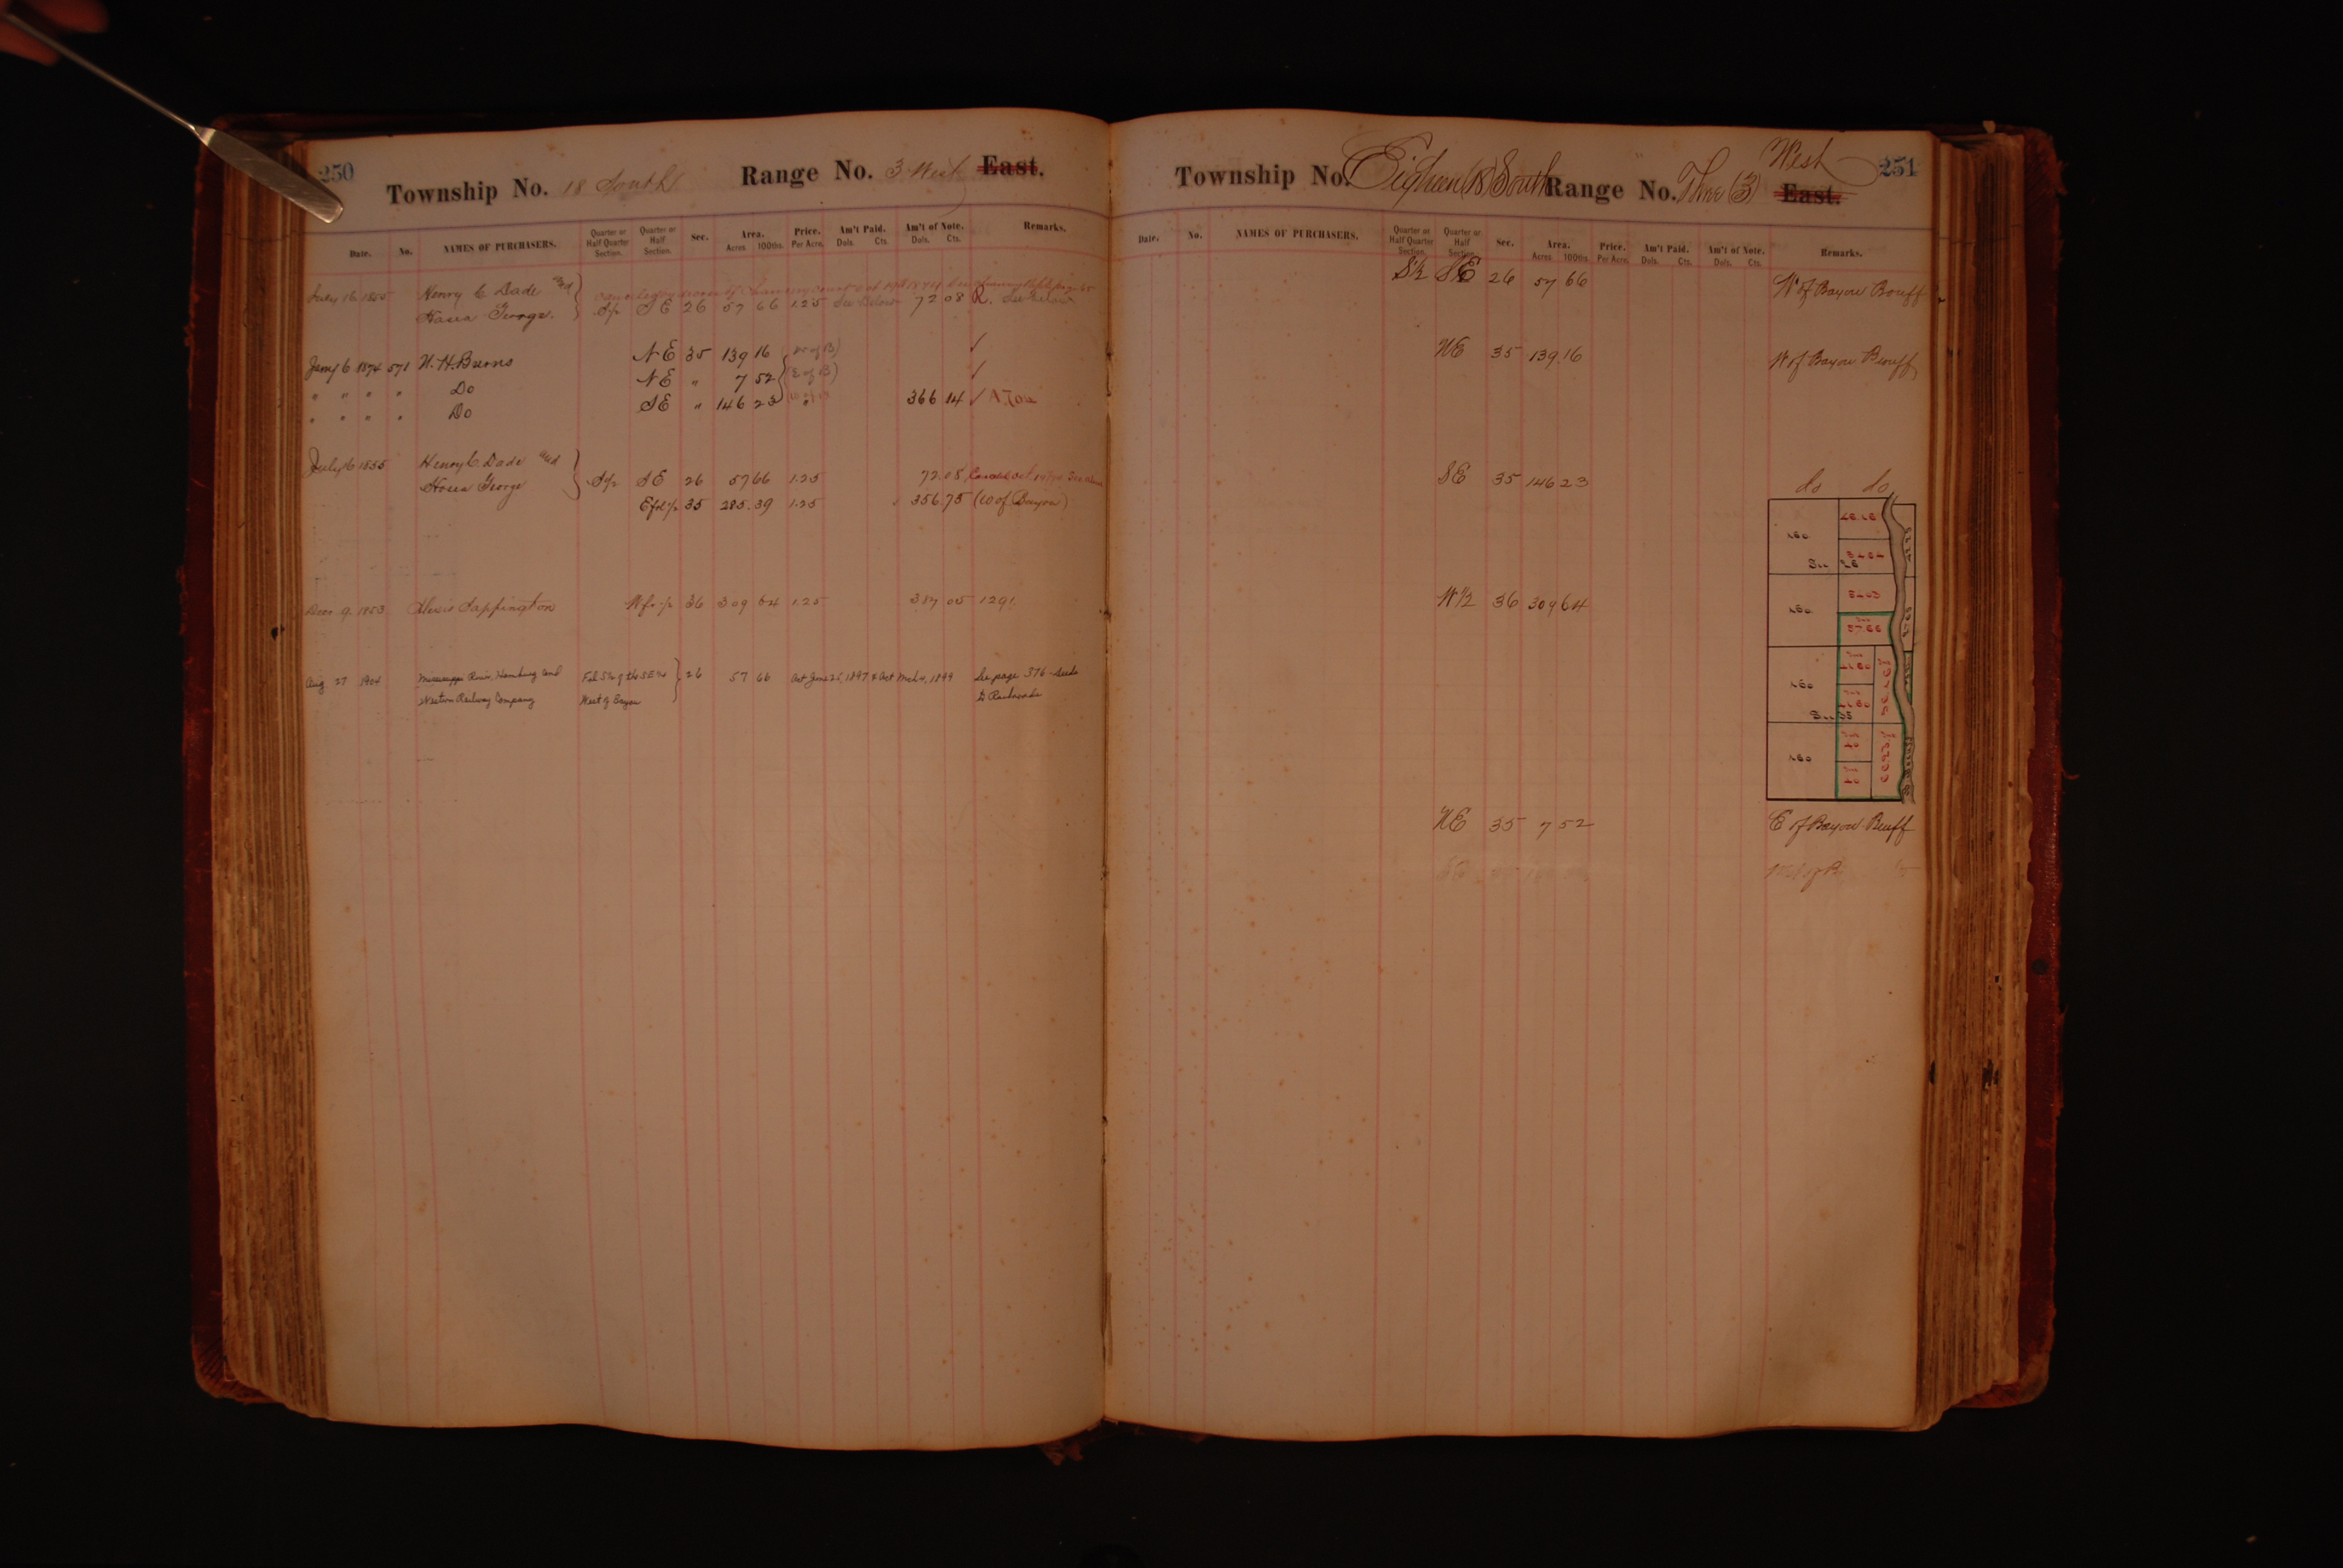 250
Township No. 18 South Range No. 3 West East.
Date. No. NAMES OF PURCHASERS. Quarter or Half Quarter Section. Quarter or Half Section. Sec. Area. Acres 100ths. Price. Per Acre. Am't Paid. Dols. Cts. Am't of Note. Dols. Cts. Remarks.
July 16 1855 Henry C Dade and
Hosea George. S½ SE 26 57 66 1.25 See Below 72 08 R. See below
Jany 6 1874 571 W. H. Burns NE 35 139 16 (W of B) ✓
" " " " Do NE " 7 52 (E of B) ✓
" " " " Do SE " 146 23 " 366 14 ✓
July 16 1855 Henry C. Dade and
Hosea George S½ SE 26 57 66 1.25 72.08
E frl ½ 35 285.39 1.25 356.75 (W of Bayou)
Decr 9. 1853 Sappington W fr ½ 36 309 64 1.25 387 05 1291
Aug 27 1904 Mississippi River, Hamburg and Fdl S½ of the SE¼ 26 57 66 Act June 26, 1897 & Act Mch 4, 1899 See page 376 - Deeds
Western Railway Company West of Bayou to Railroads
251
Township No. Eighteen (18) South Range No. Three (3) West East.
Date. No. NAMES OF PURCHASERS. Quarter or Half Quarter Section. Quarter or Half Section. Sec. Area. Acres 100ths. Price. Per Acre. Am't Paid. Dols. Cts. Am't of Note. Dols. Cts. Remarks.
S½ SE 26 57 66 W of Bayou Bouff
NE 35 139.16 W of Bayou Beouff
SE 35 146 23 do do
160
Sec 26
57.66
160
160
Sec 35
160
W½ 36 309 64
NE 35 7 52 E of Bayou Beuff